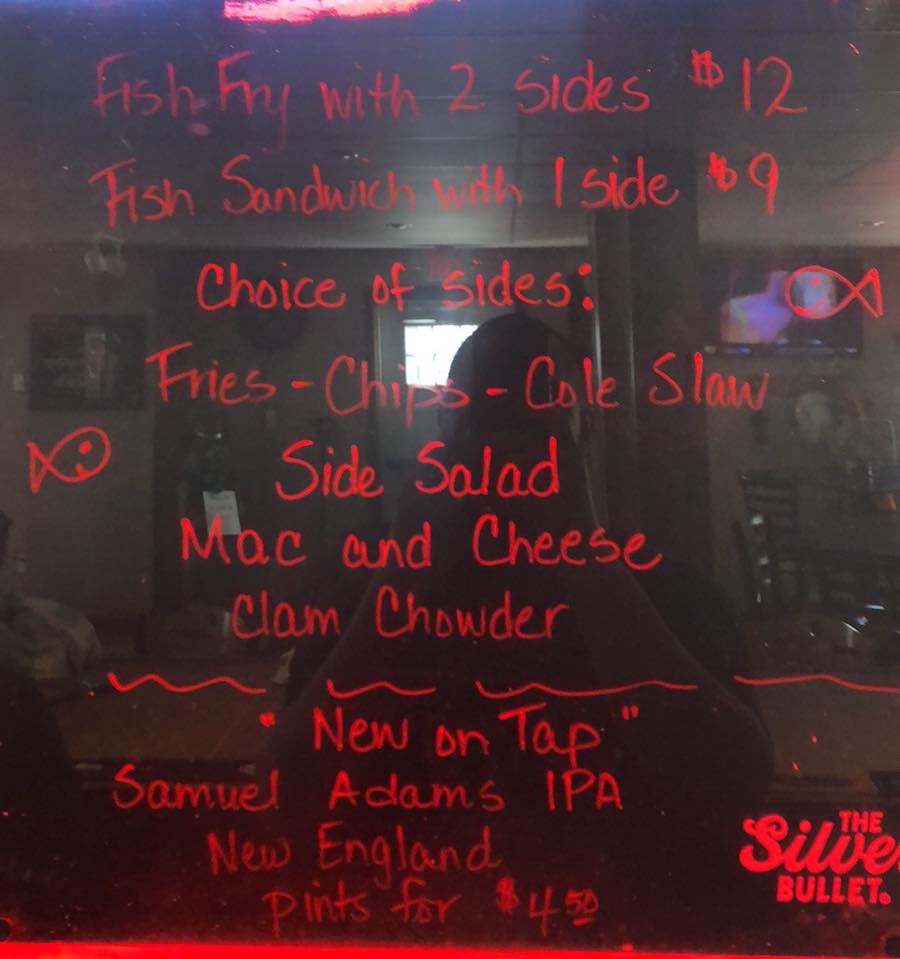 Fish Fry with 2 sides $12
Fish Sandwich with 1 side $9
Choice of sides:
Fries - Chips - Cole Slaw
Side Salad
Mac and Cheese
Clam Chowder
"New on Tap"
Samuel Adams IPA
New England
pints for $4 50
THE
Silve
BULLET.